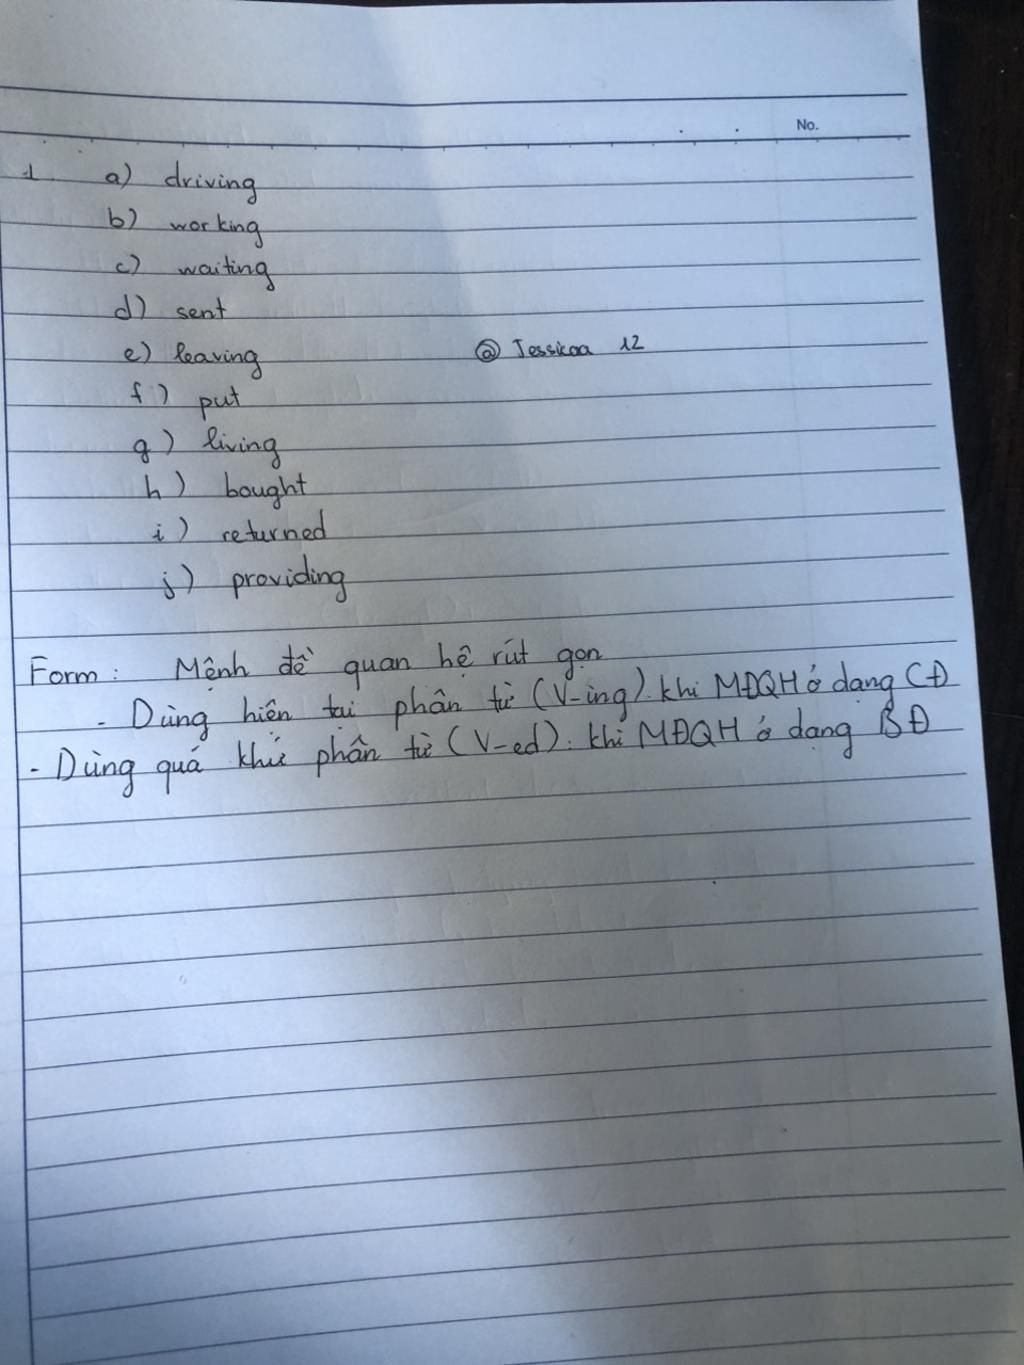 No.
1 a) driving
b) working
c) waiting
d) sent
e) leaving @ Jessikaa 12
f) put
g) living
h) bought
i) returned
j) providing
Form: Mệnh đề quan hệ rút gọn
- Dùng hiện tại phân từ (V-ing). khi MĐQH ở dạng CĐ
- Dùng quá khứ phân từ (V-ed). khi MĐQH ở dạng BĐ